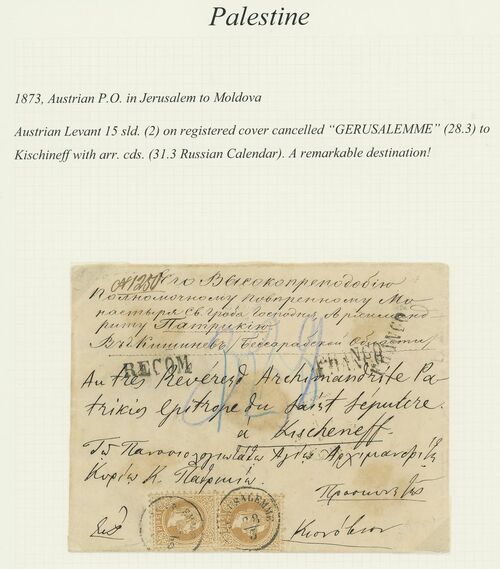 Palestine
1873, Austrian P.O. in Jerusalem to Moldova
Austrian Levant 15 sld. (2) on registered cover cancelled “GERUSALEMME” (28.3) to
Kischineff with arr. cds. (31.3 Russian Calendar). A remarkable destination!
№1250
Его Высокопреподобію
Полномочному Повѣренному Мо
настыря Св. Гроба Господня Архиманд
риту Патрикію
Въ Кишиневъ Бессарабской Области
RECOM
FRANCO
Au très Révérend Archimandrite Pa
trikios Epitrope du Saint Sepulcre.
à Kischeneff.
Τῷ Πανοσιολογιωτάτῳ Ἁγίῳ Ἀρχιμανδρίτῃ
Κυρίῳ Κ. Πατρικίῳ
Προσκυνητῶς
Εἰς Κισνόβιον
GERUSALEMME
28
3